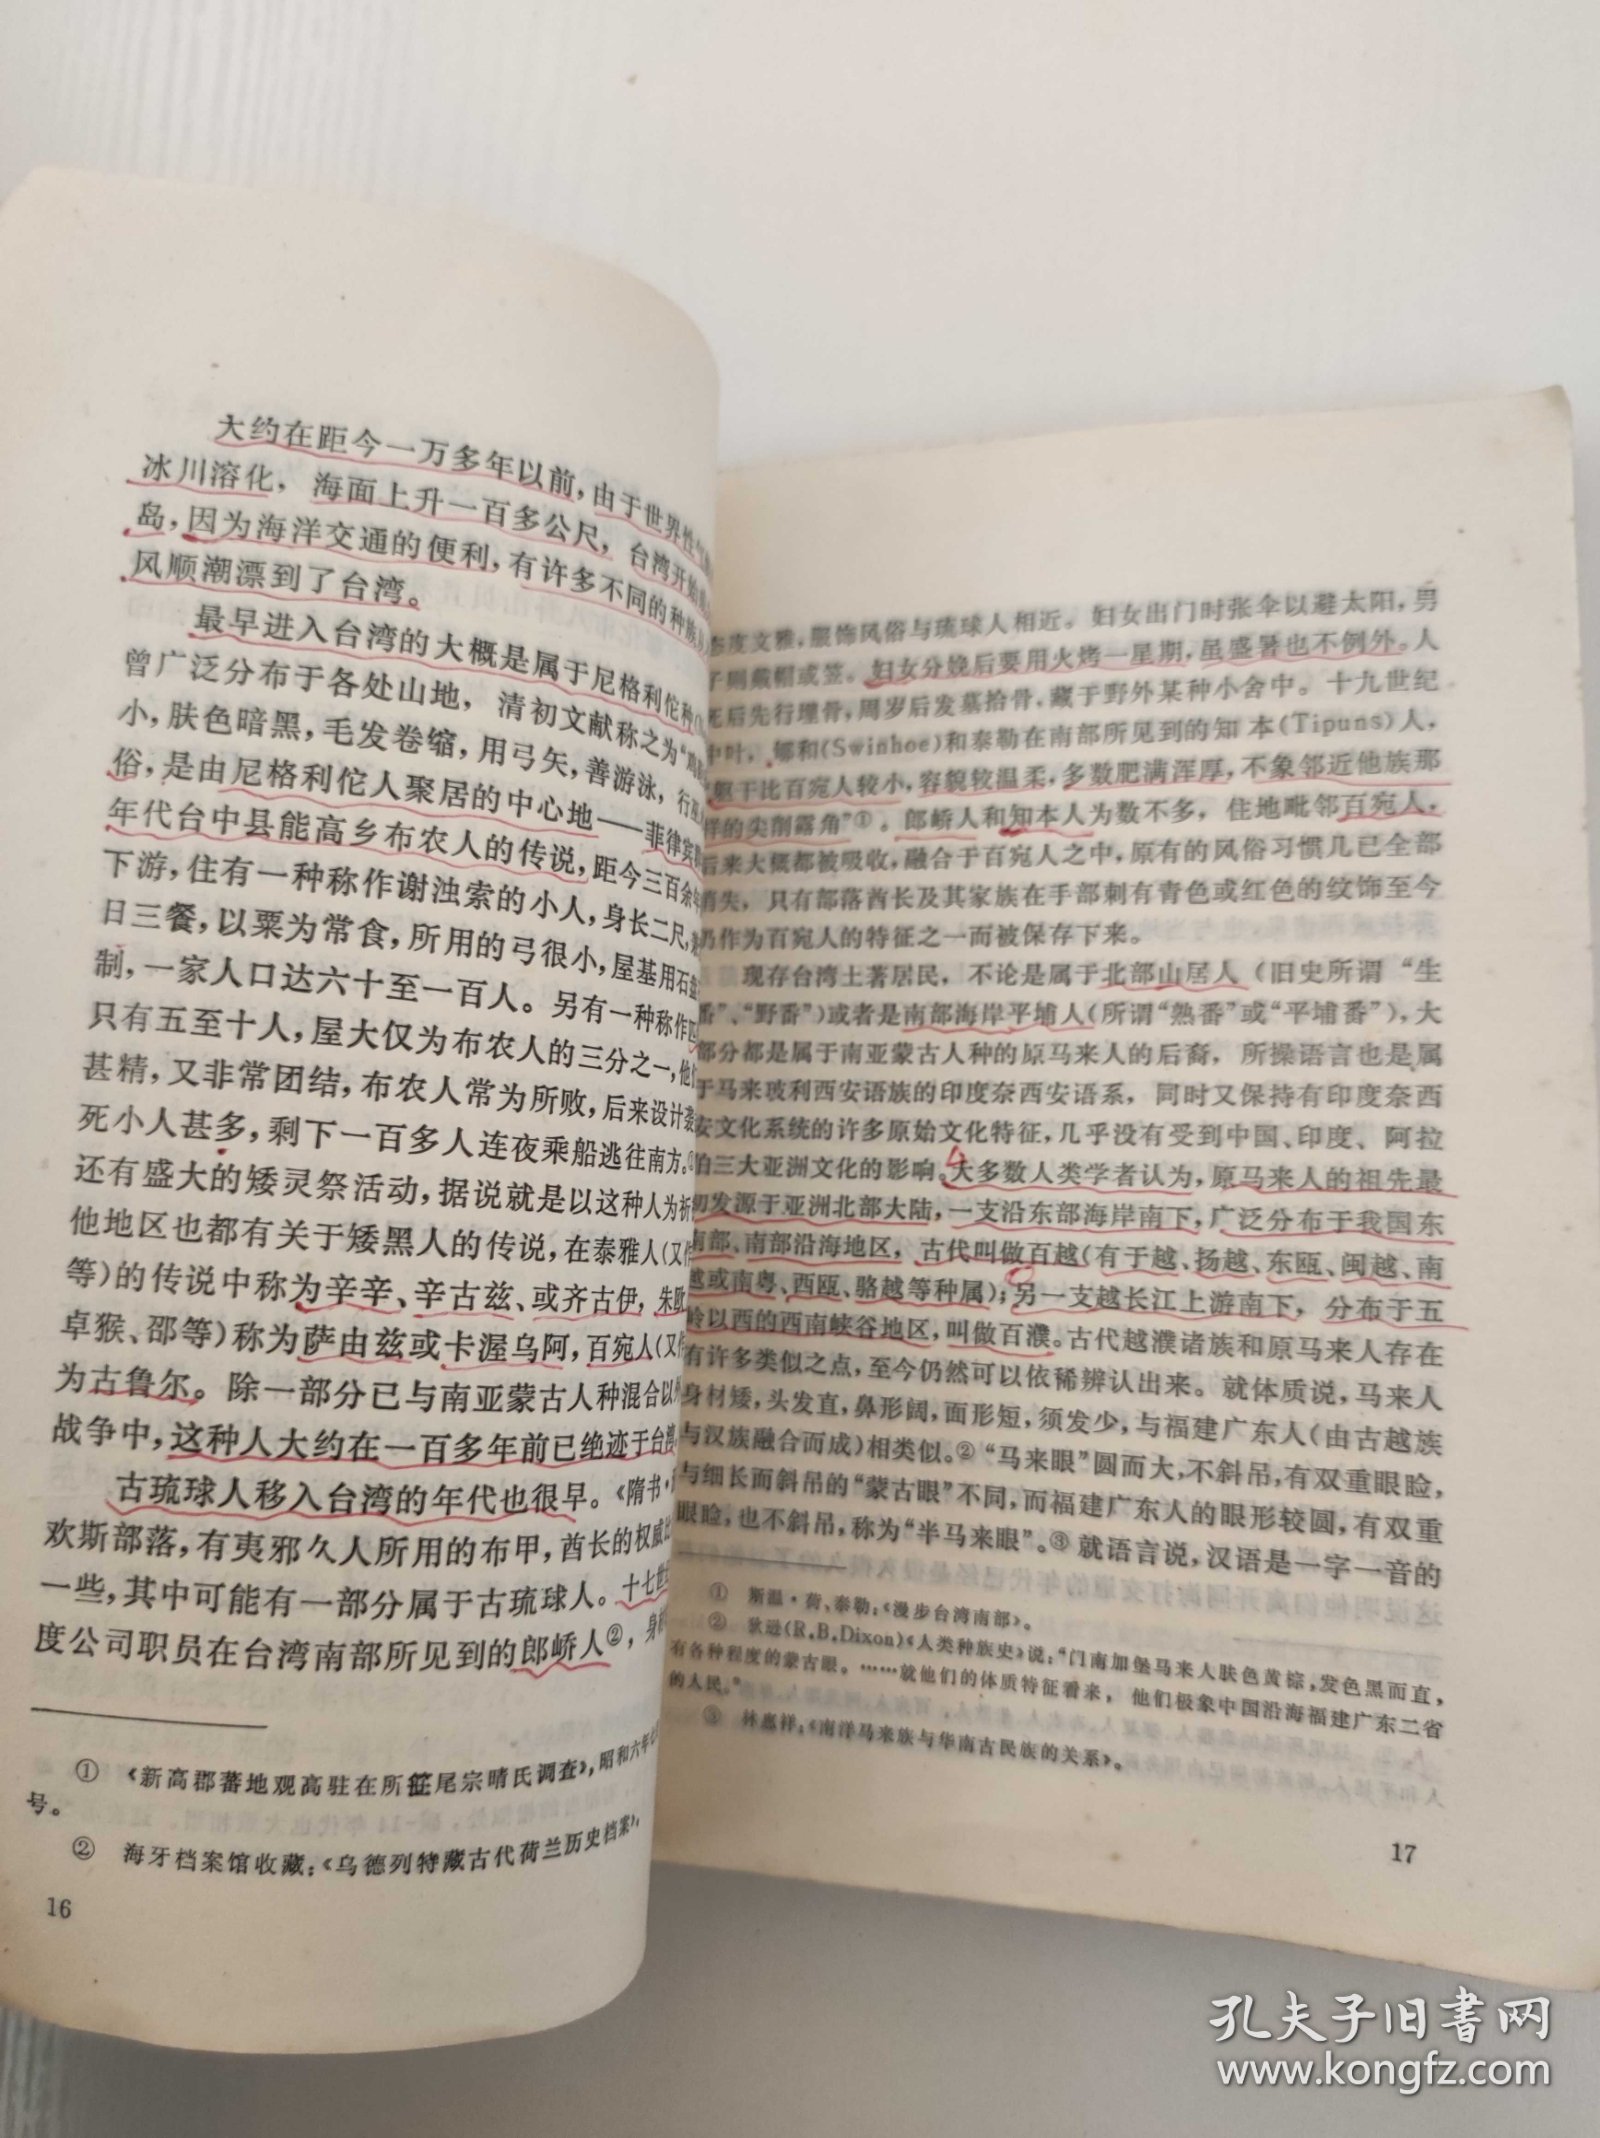 大约在距今一万多年以前，由于世界性气
冰川溶化，海面上升一百多公尺，台湾开始
岛，因为海洋交通的便利，有许多不同的种族
风顺潮漂到了台湾。
最早进入台湾的大概是属于尼格利佗种（
曾广泛分布于各处山地，清初文献称之为“
小，肤色暗黑，毛发卷缩，用弓矢，善游泳，行
俗，是由尼格利佗人聚居的中心地——菲律宾
年代台中县能高乡布农人的传说，距今三百余年
下游，住有一种称作谢浊索的小人，身长二尺，
日三餐，以粟为常食，所用的弓很小，屋基用石
制，一家人口达六十至一百人。另有一种称作
只有五至十人，屋大仅为布农人的三分之一，他
甚精，又非常团结，布农人常为所败，后来设计
死小人甚多，剩下一百多人连夜乘船逃往南方。①
还有盛大的矮灵祭活动，据说就是以这种人为祈
他地区也都有关于矮黑人的传说，在泰雅人（又作
等）的传说中称为辛辛、辛古兹、或齐古伊，朱欧
卓猴、邵等）称为萨由兹或卡渥乌阿，百宛人（又作
为古鲁尔。除一部分已与南亚蒙古人种混合以外
战争中，这种人大约在一百多年前已绝迹于台湾
古琉球人移入台湾的年代也很早。《隋书·
欢斯部落，有夷邪久人所用的布甲，酋长的权威比
一些，其中可能有一部分属于古琉球人。十七世
度公司职员在台湾南部所见到的郎峤人②，身
① 《新高郡蕃地观高驻在所征尾宗晴氏调查》，昭和六年七
号。
② 海牙档案馆收藏：《乌德列特藏古代荷兰历史档案》，
16
态度文雅，服饰风俗与琉球人相近。妇女出门时张伞以避太阳，男
子则戴帽或笠。妇女分娩后要用火烤一星期，虽盛暑也不例外。人
死后先行埋骨，周岁后发墓拾骨，藏于野外某种小舍中。十九世纪
中叶，郇和（Swinhoe）和泰勒在南部所见到的知本（Tipuns）人，
“躯干比百宛人较小，容貌较温柔，多数肥满浑厚，不象邻近他族那
样的尖削露角”①。郎峤人和知本人为数不多，住地毗邻百宛人，
后来大概都被吸收，融合于百宛人之中，原有的风俗习惯几已全部
消失，只有部落酋长及其家族在手部刺有青色或红色的纹饰至今
仍作为百宛人的特征之一而被保存下来。
现存台湾土著居民，不论是属于北部山居人（旧史所谓“生
番”、“野番”）或者是南部海岸平埔人（所谓“熟番”或“平埔番”），大
部分都是属于南亚蒙古人种的原马来人的后裔，所操语言也是属
于马来玻利西安语族的印度奈西安语系，同时又保持有印度奈西
安文化系统的许多原始文化特征，几乎没有受到中国、印度、阿拉
伯三大亚洲文化的影响。大多数人类学者认为，原马来人的祖先最
初发源于亚洲北部大陆，一支沿东部海岸南下，广泛分布于我国东
南部、南部沿海地区，古代叫做百越（有于越、扬越、东瓯、闽越、南
越或南粤、西瓯、骆越等种属）；另一支越长江上游南下，分布于五
岭以西的西南峡谷地区，叫做百濮。古代越濮诸族和原马来人存在
有许多类似之点，至今仍然可以依稀辨认出来。就体质说，马来人
身材矮，头发直，鼻形阔，面形短，须发少，与福建广东人（由古越族
与汉族融合而成）相类似。②“马来眼”圆而大，不斜吊，有双重眼睑，
与细长而斜吊的“蒙古眼”不同，而福建广东人的眼形较圆，有双重
眼睑，也不斜吊，称为“半马来眼”。③就语言说，汉语是一字一音的
① 斯温·荷、泰勒：《漫步台湾南部》。
② 狄逊（R.B.Dixon）《人类种族史》说：“门南加堡马来人肤色黄棕，发色黑而直，
有各种程度的蒙古眼。……就他们的体质特征看来，他们极象中国沿海福建广东二省
的人民。”
③ 林惠祥：《南洋马来族与华南古民族的关系》。
17
孔夫子旧书网
www.kongfz.com